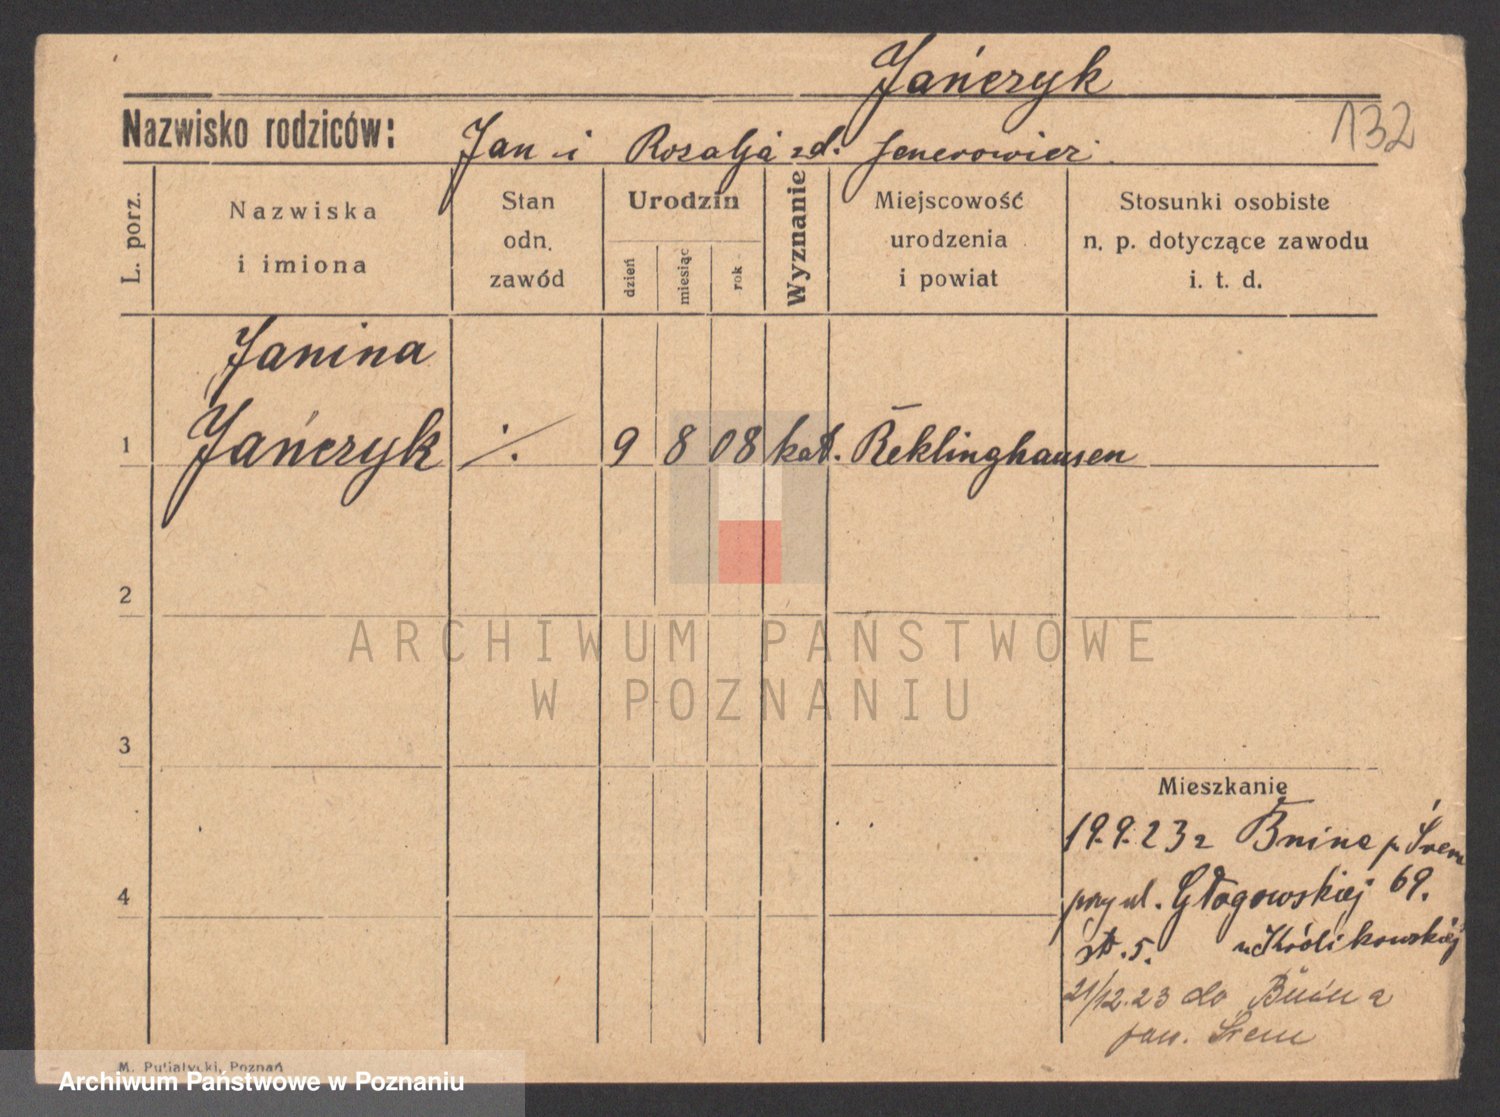 Jańczyk
132
Nazwisko rodziców: Jan i Rozalja zd.
L. porz.
Nazwiska
i imiona
Stan
odn.
zawód
Urodzin
dzień
miesiąc
rok
Wyznanie
Miejscowość
urodzenia
i powiat
Stosunki osobiste
n. p. dotyczące zawodu
i. t. d.
Janina
1 Jańczyk ./. 9 8 08 kat. Reklinghausen
2
ARCHIWUM PAŃSTWOWE
W POZNANIU
3
Mieszkanie
19.9.23 z Bnina p. Śrem
4
przy ul. Głogowskiej 69.
st. 5. u Królikowskiej
21/12.23 do Bnina
pow. Śrem
M. Putiatycki, Poznań
Archiwum Państwowe w Poznaniu